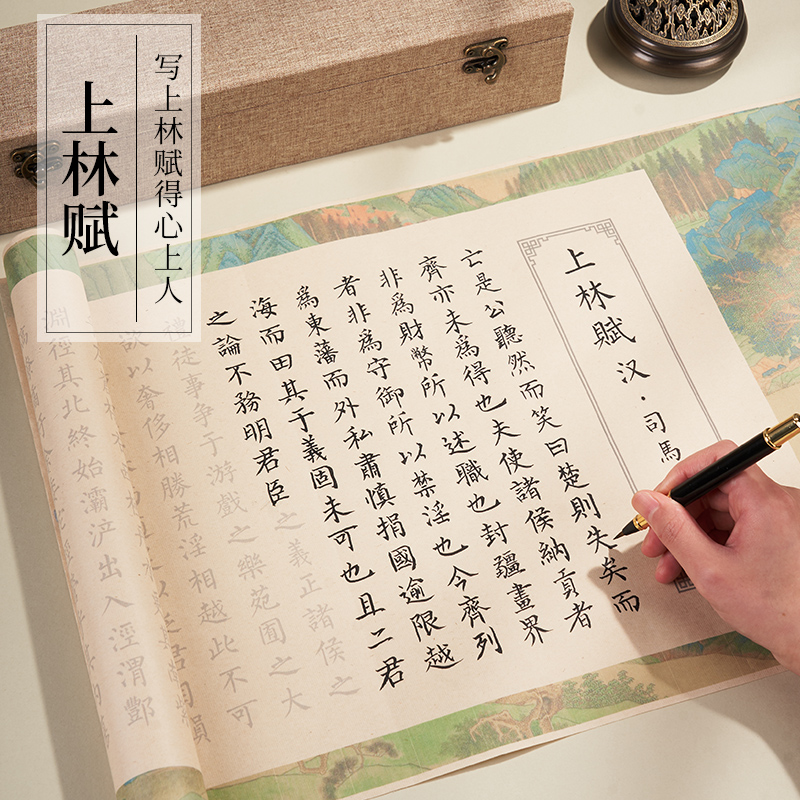 上林赋
写上林赋得心上人
上林賦 汉·司馬
亡是公聽然而笑曰楚則失矣而
齊亦未爲得也夫使諸侯納貢者
非爲財幣所以述職也封疆畫界
者非爲守御所以禁淫也今齊列
爲東藩而外私肅慎捐國逾限越
海而田其于義固未可也且二君
之論不務明君臣之義正諸侯之
禮徒事爭于游戲之樂苑囿之大
欲以奢侈相勝荒淫相越此不可
淵徑其北終始灞浐出入涇渭酆